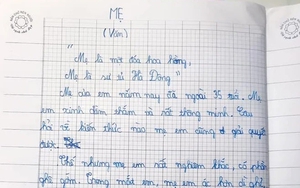 MẸ
(Văn)
"Mẹ là một đóa hoa hồng,
Mẹ là sư tử Hà Đông"
Mẹ của em năm nay đã ngoài 35 rồi. Mẹ
em xinh đẹp thắm và rất thông minh. Câu
hỏi về kiến thức nào mẹ em cũng giải quyết
được.
Thế nhưng mẹ em rất nghiêm khắc, có phần
ghê gớm. Trong mắt em, mẹ em ác hơn dì ghẻ,